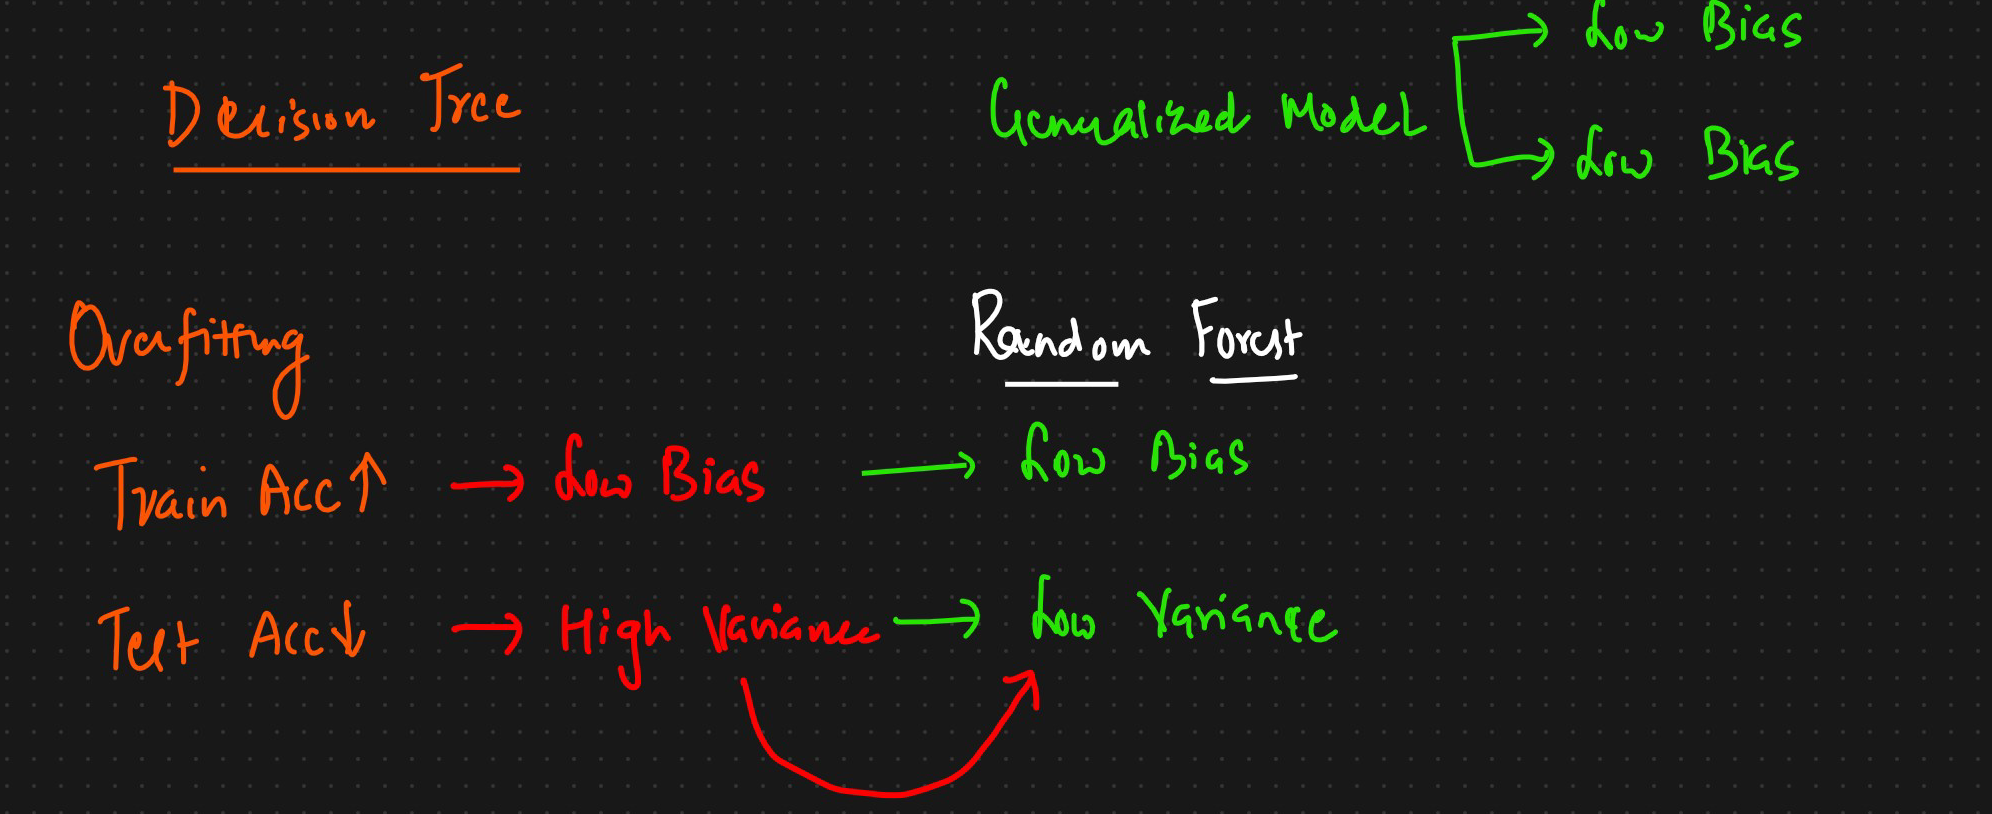 Decision Tree
Generalized Model → Low Bias
→ Low Bias
Overfitting
Random Forest
Train Acc ↑ → Low Bias → Low Bias
Test Acc ↓ → High Variance → Low Variance